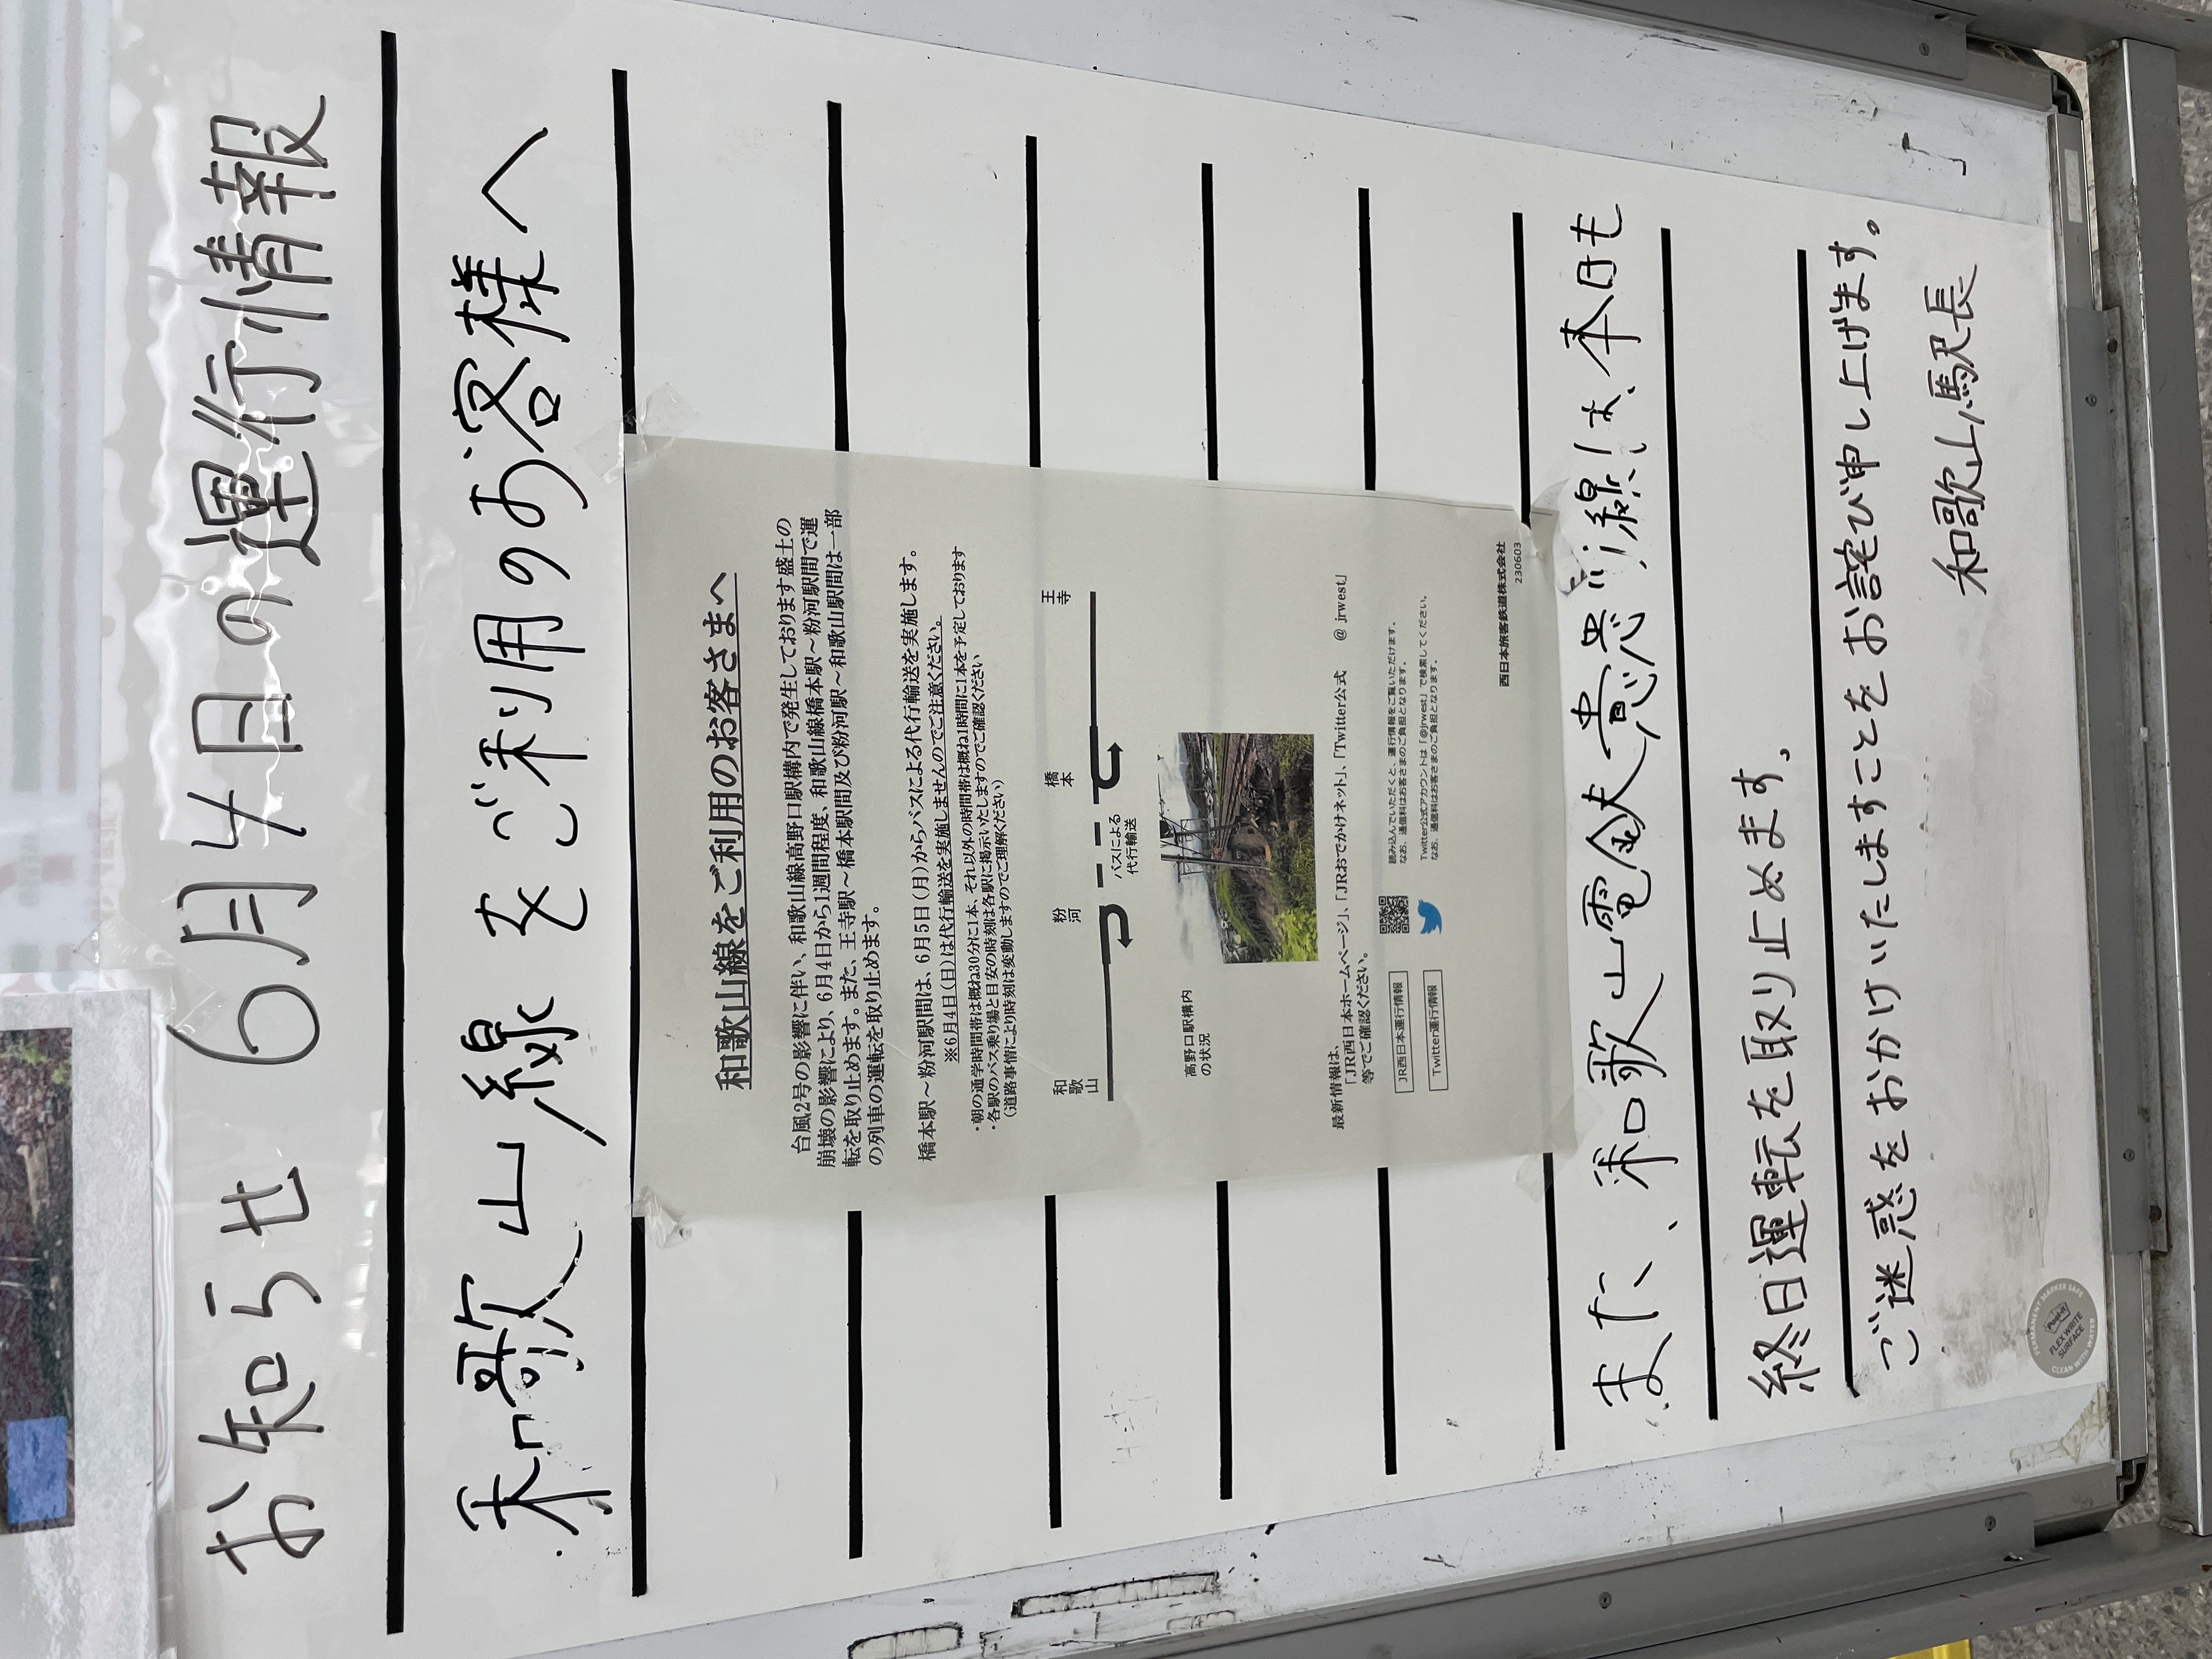 お知らせ 6月4日の運行情報
和歌山線をご利用のお客様へ
和歌山線をご利用のお客さまへ
台風2号の影響に伴い、和歌山線高野口駅構内で発生しております盛土の
崩壊の影響により、6月4日から1週間程度、和歌山線橋本駅～粉河駅間で運
転を取り止めます。また、王寺駅～橋本駅間及び粉河駅～和歌山駅間は一部
の列車の運転を取り止めます。
橋本駅～粉河駅間は、6月5日(月)からバスによる代行輸送を実施します。
※6月4日(日)は代行輸送を実施しませんのでご注意ください。
・朝の通学時間帯は概ね30分に1本、それ以外の時間帯は概ね1時間に1本を予定しております
・各駅のバス乗り場と目安の時刻は各駅に掲示いたしますのでご確認ください
(道路事情により時刻は変動しますのでご理解ください)
和歌山 粉河 橋本 王寺
バスによる
代行輸送
高野口駅構内
の状況
最新情報は、
「JR西日本ホームページ」、「JRおでかけネット」、「Twitter公式 @jrwest」
等でご確認ください。
JR西日本運行情報
読み込んでいただくと、運行情報をご覧いただけます。
なお、通信料はお客さまのご負担となります。
Twitter運行情報
Twitter公式アカウントは「@jrwest」で検索してください。
なお、通信料はお客さまのご負担となります。
西日本旅客鉄道株式会社
230603
また、和歌山電鉄貴志川線は、本日も
終日運転を取り止めます。
ご迷惑をおかけいたしますことをお詫び申し上げます。
和歌山駅長
PERMANENT MARKER SAFE
Post-it
FLEX WRITE
SURFACE
CLEAN WITH WATER